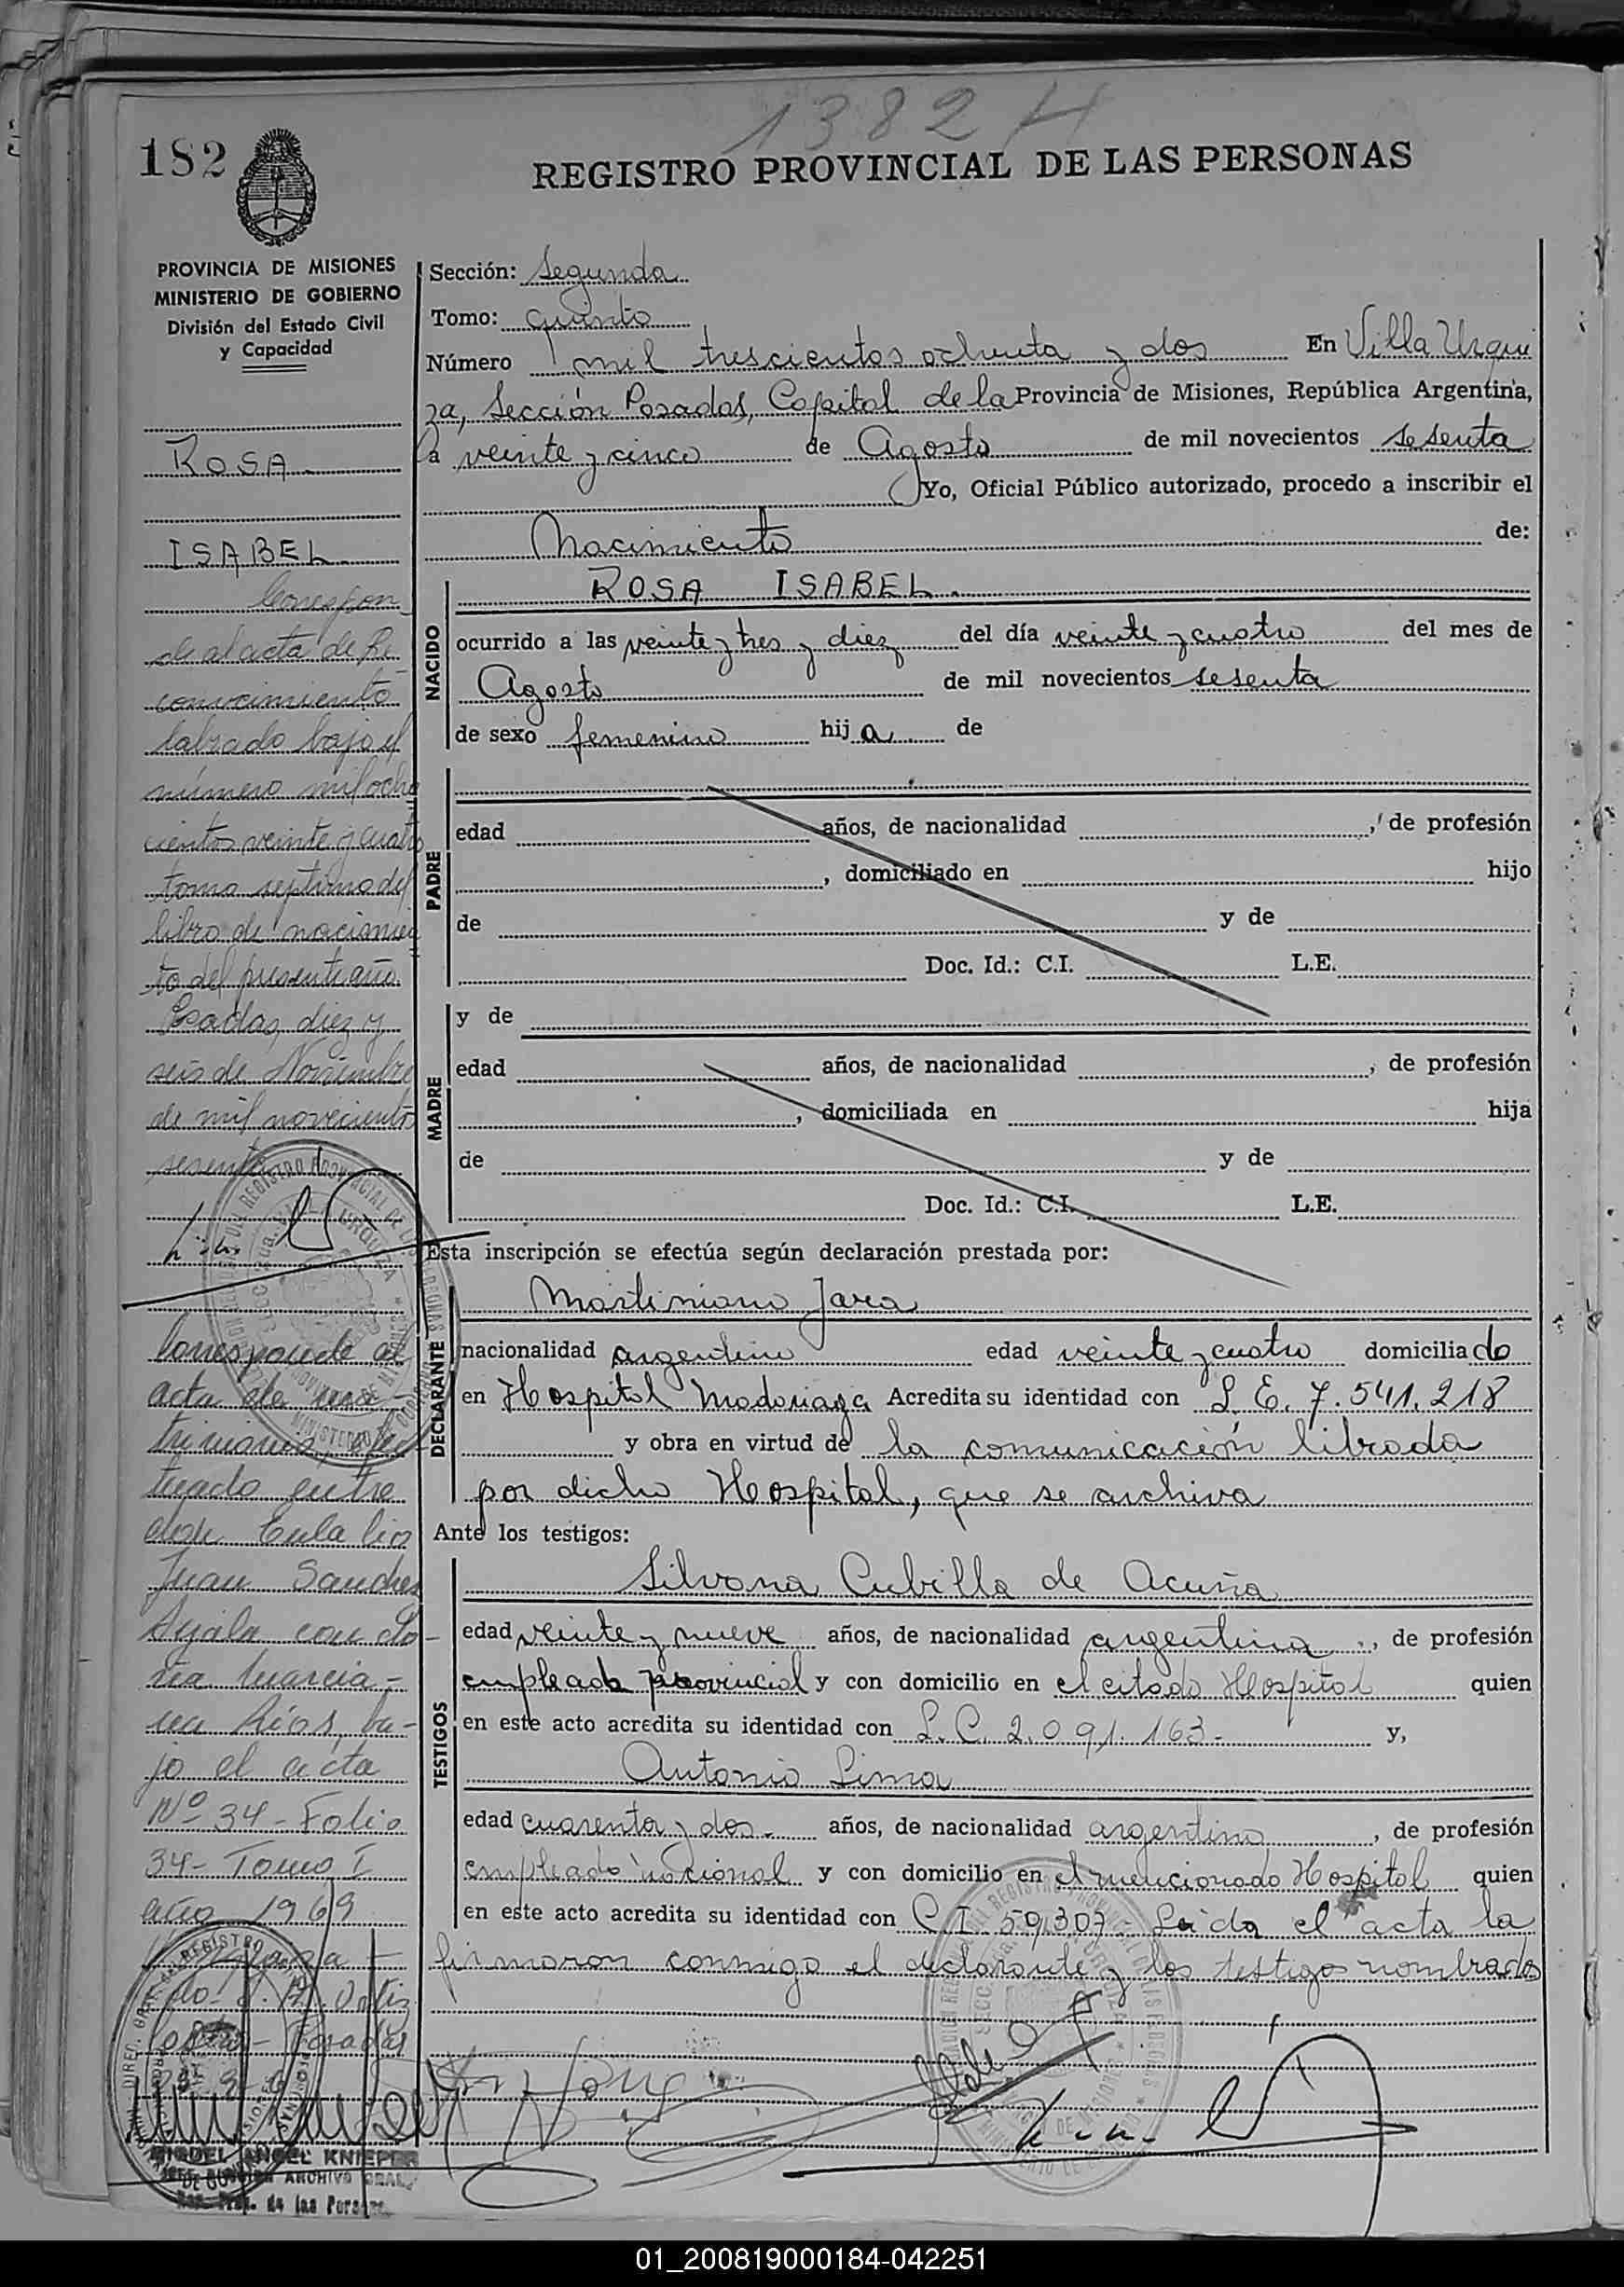 1382 H
182
REGISTRO PROVINCIAL DE LAS PERSONAS
PROVINCIA DE MISIONES
MINISTERIO DE GOBIERNO
División del Estado Civil
y Capacidad
ROSA
ISABEL
Correspon
de al acta de Re
conocimiento
labrado bajo el
número mil ocho
cientos veinte y cuatro
tomo septimo del
libro de nacimien
to del presente año.
Posadas, diez y
seis de Noviembre
de mil novecientos
sesenta
Corresponde al
acta de ma-
trimonio, efec
tuado entre
don Eulalio
Juan Sanchez
Ayala con do-
ña Marcia-
na Ríos, ba-
jo el acta
Nº 34 - Folio
34 - Tomo I
año 1969
Ortiz
Posadas
MIGUEL ANGEL KNIEPER
JEFE DIVISION ARCHIVO GRAL.
Reg. Prov. de las Personas
Sección: Segunda
Tomo: quinto
Número mil trescientos ochenta y dos En Villa Urqui
za, Sección Posadas, Capital de la Provincia de Misiones, República Argentina,
a veinte y cinco de Agosto de mil novecientos sesenta
Yo, Oficial Público autorizado, procedo a inscribir el
Nacimiento de:
NACIDO
ROSA ISABEL.
ocurrido a las veinte y tres y diez del día veinte y cuatro del mes de
Agosto de mil novecientos sesenta
de sexo femenino hija de
PADRE
edad años, de nacionalidad , de profesión
, domiciliado en hijo
de y de
Doc. Id.: C.I. L.E.
MADRE
y de
edad años, de nacionalidad , de profesión
, domiciliada en hija
de y de
Doc. Id.: C.I. L.E.
Esta inscripción se efectúa según declaración prestada por:
DECLARANTE
Martiniano Jara
nacionalidad argentino edad veinte y cuatro domiciliado
en Hospital Madariaga Acredita su identidad con L. E. 7.541.218
y obra en virtud de la comunicación librada
por dicho Hospital, que se archiva
Ante los testigos:
TESTIGOS
Silvana Cubilla de Acuña
edad veinte y nueve años, de nacionalidad argentina, de profesión
empleada provincial y con domicilio en el citado Hospital quien
en este acto acredita su identidad con L. C. 2.091.163.- y,
Antonio Lima
edad cuarenta y dos.- años, de nacionalidad argentino, de profesión
empleado nacional y con domicilio en el mencionado Hospital quien
en este acto acredita su identidad con C. I. 59.307 - Leida el acta la
firmaron conmigo el declarante y los testigos nombrados
01_200819000184-042251